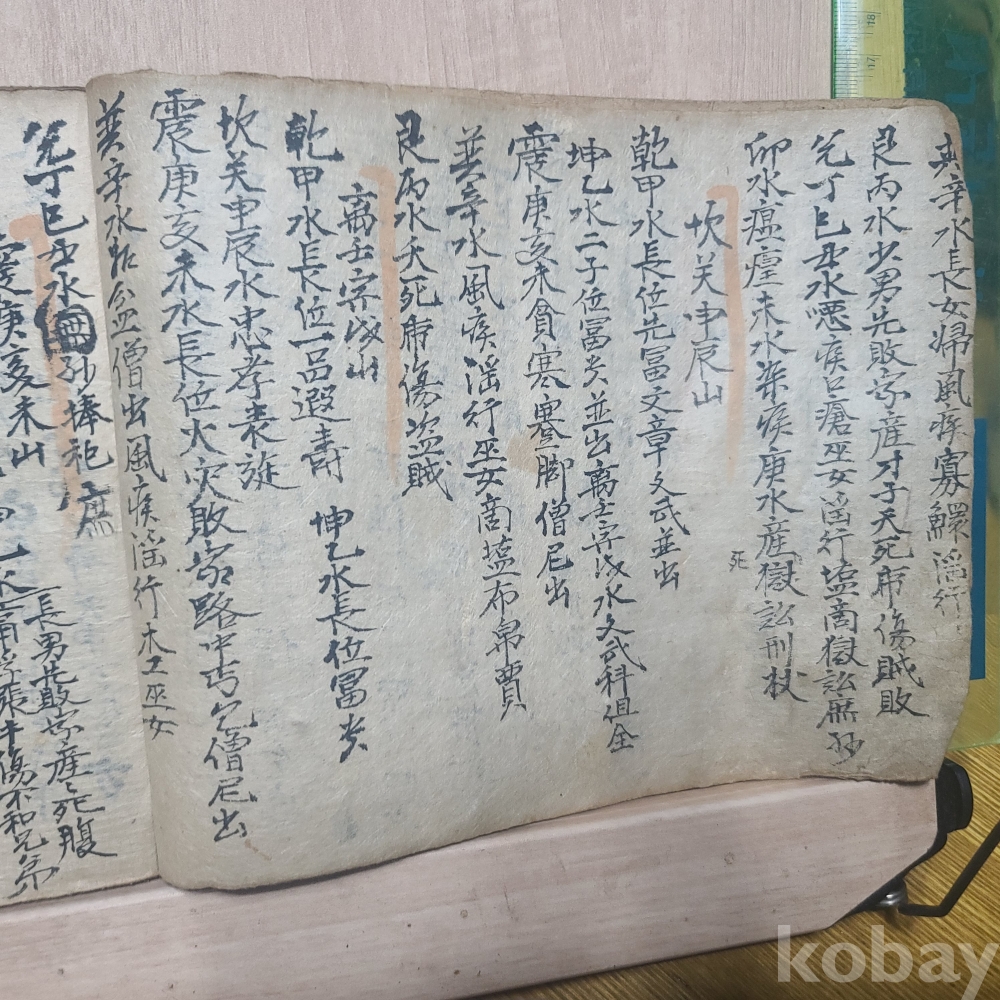 巽辛水長女婦風疾寡鰥滛行
艮丙水少男先敗家産才子夭死布傷賊敗
兊丁巳丑水惡疾口瘡巫女滛行塩商獄訟麻
卯水瘟瘽未水染疾庚水産獄訟刑杖
死
坎癸申辰山
乾甲水長位先冨文章文武並出
坤乙水二子位冨贵並出离壬寅戌水文武科俱全
震庚亥未貪寒蹇脚僧尼出
巽辛水風疾滛行巫女商塩布帛賣
艮丙水夭死布傷盗賊
离壬寅戌山
乾甲水長位一品遐壽 坤乙水長位冨贵
坎癸申辰水忠孝表旌
震庚亥未水長位火灾敗家路中丐乞僧尼出
巽辛水 盗僧出風疾滛行木工巫女
兊丁巳丑水 外孫捧祀
長男先敗家産死腹
震庚亥未山
傷不和兄弟
17
18
kobay